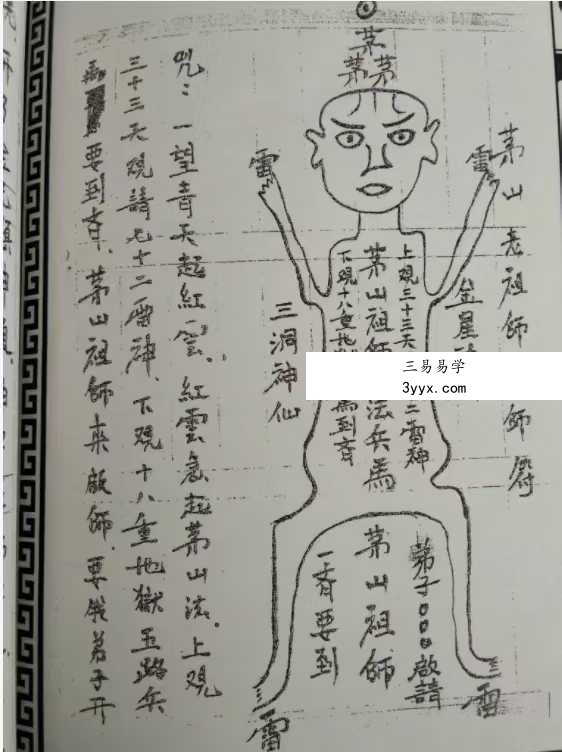 茅山老祖師
師符
金星
茅
茅茅
雷
雷
上觀三十三天
二雷神
茅山祖師
法兵馬
下觀十八重地
馬到齊
三洞神仙
弟子○○○啟請
茅山祖師
一齊要到
雷
雷
咒：一望青天起紅雲、紅雲忩起茅山法、上觀
三十三天觀請七十二雷神、下觀十八重地獄五路兵
要到齊、茅山祖師來啟師、要俄弟子开
三易易学
3yyx.com